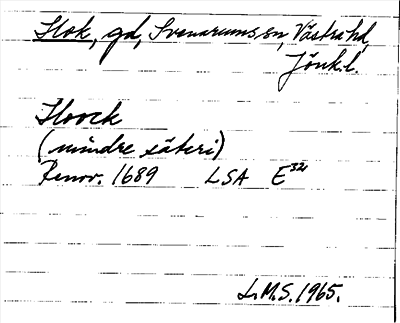 Slok, gd, Svenarums sn, Västra hd,
Jönk. l.
Sloock
(mindre säteri)
Renov. 1689 LSA E³²
L.M.S. 1965.